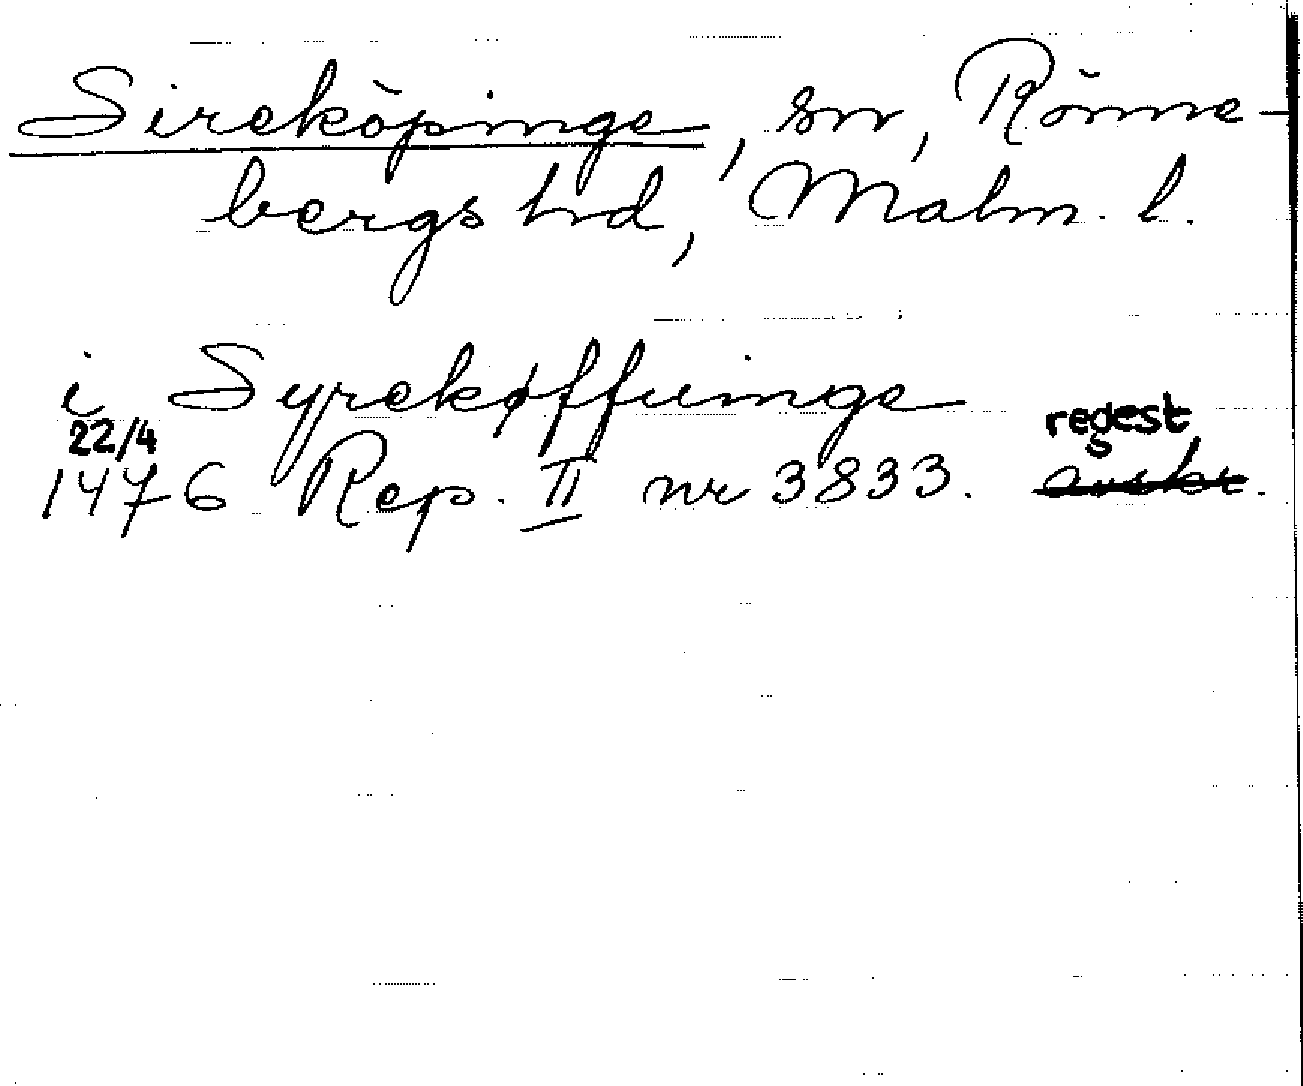 Sireköpinge, sn, Rönne-
bergs hd, Malm. l.
i Syrekøffuinge
22/4 regest
1476 Rep. II nr 3833. avskr.